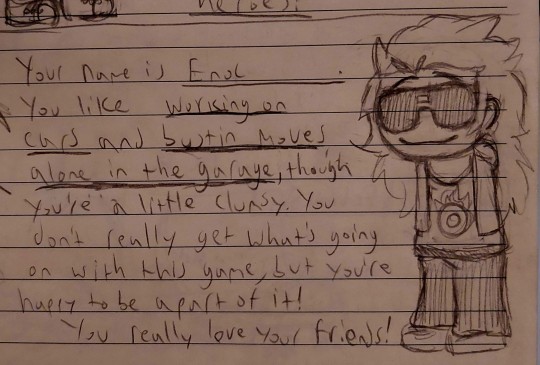 heroes!
Your name is Enol.
You like working on
cars and bustin moves
alone in the garage, though
you're a little clumsy. You
don't really get what's going
on with this game, but you're
happy to be a part of it!
You really love your friends!